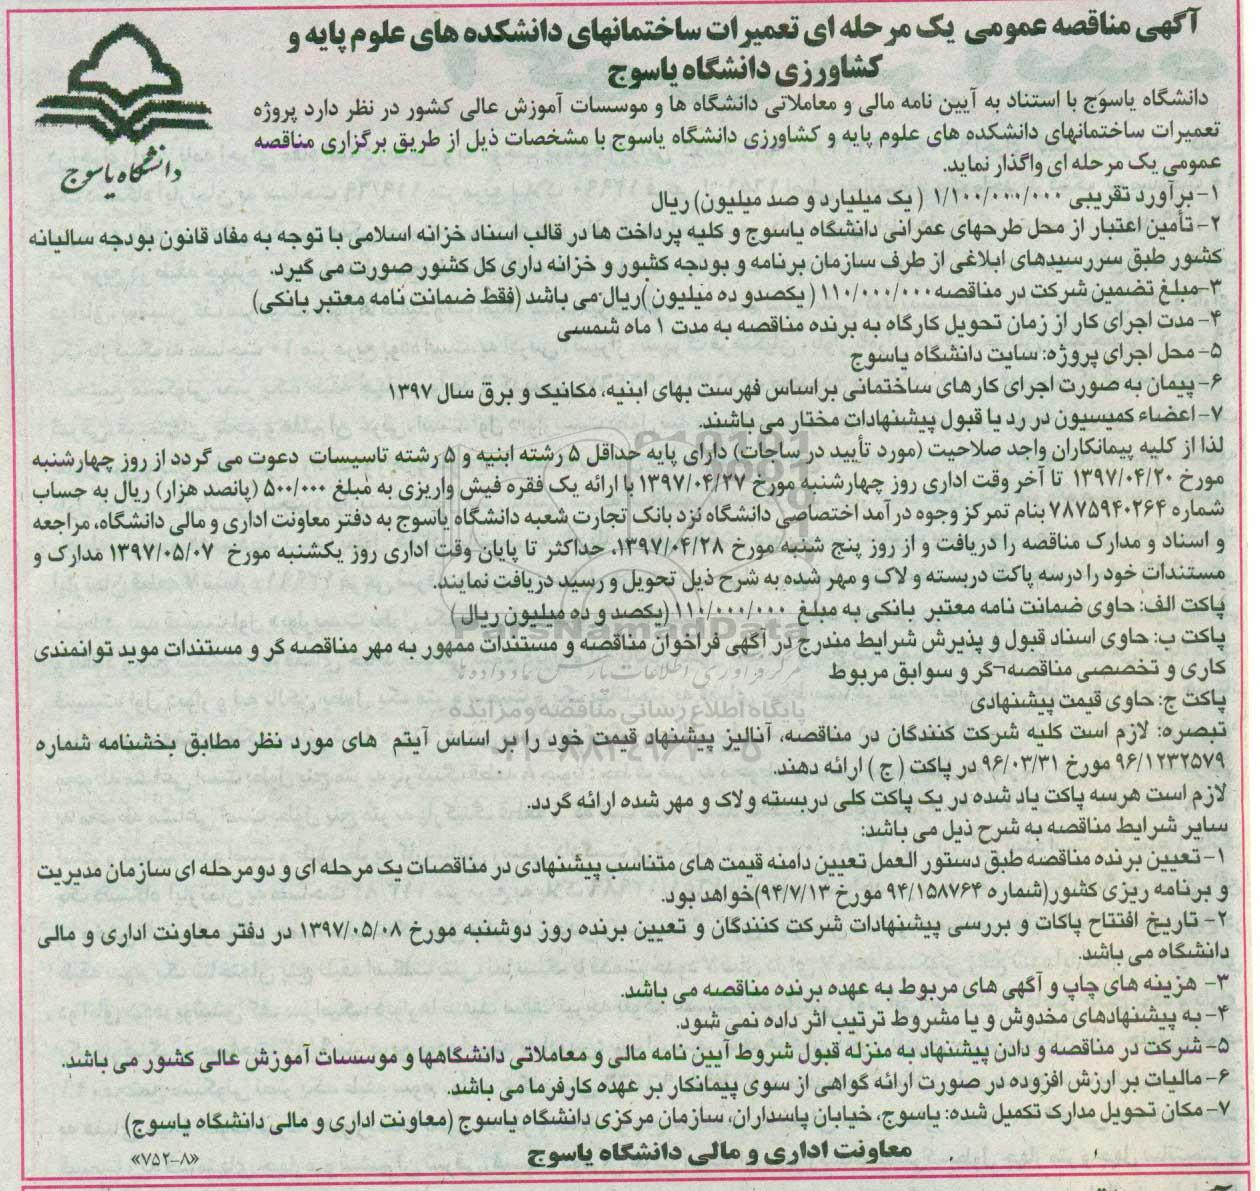 آگهی مناقصه عمومی یک مرحله ای تعمیرات ساختمانهای دانشکده های علوم پایه و
کشاورزی دانشگاه یاسوج
دانشگاه یاسوج
دانشگاه یاسوج با استناد به آیین نامه مالی و معاملاتی دانشگاه ها و موسسات آموزش عالی کشور در نظر دارد پروژه
تعمیرات ساختمانهای دانشکده های علوم پایه و کشاورزی دانشگاه یاسوج با مشخصات ذیل از طریق برگزاری مناقصه
عمومی یک مرحله ای واگذار نماید.
۱- برآورد تقریبی ۱/۱۰۰/۰۰۰/۰۰۰ ( یک میلیارد و صد میلیون) ریال
۲- تأمین اعتبار از محل طرحهای عمرانی دانشگاه یاسوج و کلیه پرداخت ها در قالب اسناد خزانه اسلامی با توجه به مفاد قانون بودجه سالیانه
کشور طبق سررسیدهای ابلاغی از طرف سازمان برنامه و بودجه کشور و خزانه داری کل کشور صورت می گیرد.
۳-مبلغ تضمین شرکت در مناقصه ۱۱۰/۰۰۰/۰۰۰ ( یکصدو ده میلیون )ریال می باشد (فقط ضمانت نامه معتبر بانکی)
۴- مدت اجرای کار از زمان تحویل کارگاه به برنده مناقصه به مدت ۱ ماه شمسی
۵- محل اجرای پروژه: سایت دانشگاه یاسوج
۶- پیمان به صورت اجرای کارهای ساختمانی براساس فهرست بهای ابنیه، مکانیک و برق سال ۱۳۹۷
۷- اعضاء کمیسیون در رد یا قبول پیشنهادات مختار می باشند.
لذا از کلیه پیمانکاران واجد صلاحیت (مورد تأیید در ساجات) دارای پایه حداقل ۵ رشته ابنیه و ۵ رشته تاسیسات دعوت می گردد از روز چهارشنبه
مورخ ۱۳۹۷/۰۴/۲۰ تا آخر وقت اداری روز چهارشنبه مورخ ۱۳۹۷/۰۴/۲۷ با ارائه یک فقره فیش واریزی به مبلغ ۵۰۰/۰۰۰ (پانصد هزار) ریال به حساب
شماره ۷۸۷۵۹۴۰۲۶۴ بنام تمرکز وجوه درآمد اختصاصی دانشگاه نزد بانک تجارت شعبه دانشگاه یاسوج به دفتر معاونت اداری و مالی دانشگاه، مراجعه
و اسناد و مدارک مناقصه را دریافت و از روز پنج شنبه مورخ ۱۳۹۷/۰۴/۲۸، حداکثر تا پایان وقت اداری روز یکشنبه مورخ ۱۳۹۷/۰۵/۰۷ مدارک و
مستندات خود را درسه پاکت دربسته و لاک و مهر شده به شرح ذیل تحویل و رسید دریافت نمایند.
پاکت الف: حاوی ضمانت نامه معتبر بانکی به مبلغ ۱۱۰/۰۰۰/۰۰۰ (یکصد و ده میلیون ریال )
پاکت ب: حاوی اسناد قبول و پذیرش شرایط مندرج در آگهی فراخوان مناقصه و مستندات ممهور به مهر مناقصه گر و مستندات موید توانمندی
کاری و تخصصی مناقصه¬گر و سوابق مربوط
پاکت ج: حاوی قیمت پیشنهادی
تبصره: لازم است کلیه شرکت کنندگان در مناقصه، آنالیز پیشنهاد قیمت خود را بر اساس آیتم های مورد نظر مطابق بخشنامه شماره
۹۶/۱۲۳۲۵۷۹ مورخ ۹۶/۰۳/۳۱ در پاکت ( ج ) ارائه دهند.
لازم است هرسه پاکت یاد شده در یک پاکت کلی دربسته ولاک و مهر شده ارائه گردد.
سایر شرایط مناقصه به شرح ذیل می باشد:
۱- تعیین برنده مناقصه طبق دستور العمل تعیین دامنه قیمت های متناسب پیشنهادی در مناقصات یک مرحله ای و دومرحله ای سازمان مدیریت
و برنامه ریزی کشور(شماره ۹۴/۱۵۸۷۶۴ مورخ ۹۴/۷/۱۳)خواهد بود.
۲- تاریخ افتتاح پاکات و بررسی پیشنهادات شرکت کنندگان و تعیین برنده روز دوشنبه مورخ ۱۳۹۷/۰۵/۰۸ در دفتر معاونت اداری و مالی
دانشگاه می باشد.
۳- هزینه های چاپ و آگهی های مربوط به عهده برنده مناقصه می باشد.
۴- به پیشنهادهای مخدوش و یا مشروط ترتیب اثر داده نمی شود.
۵- شرکت در مناقصه و دادن پیشنهاد به منزله قبول شروط آیین نامه مالی و معاملاتی دانشگاهها و موسسات آموزش عالی کشور می باشد.
۶- مالیات بر ارزش افزوده در صورت ارائه گواهی از سوی پیمانکار بر عهده کارفرما می باشد.
۷- مکان تحویل مدارک تکمیل شده: یاسوج، خیابان پاسداران، سازمان مرکزی دانشگاه یاسوج (معاونت اداری و مالی دانشگاه یاسوج)
معاونت اداری و مالی دانشگاه یاسوج
«۷۵۲-۸»
ParsNamadData
پایگاه اطلاع رسانی مناقصه و مزایده